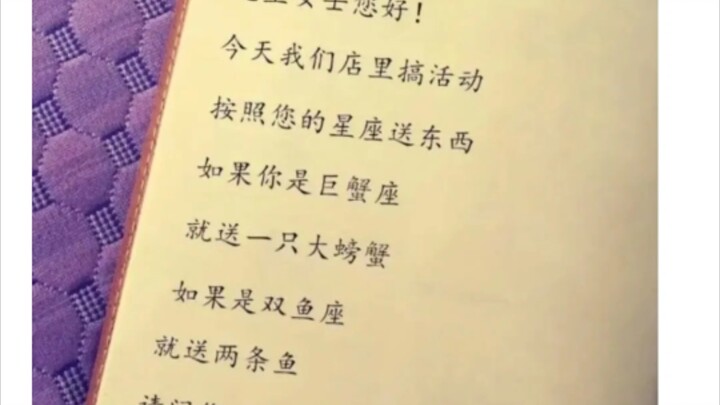 女士您好！
今天我们店里搞活动
按照您的星座送东西
如果你是巨蟹座
就送一只大螃蟹
如果是双鱼座
就送两条鱼
请问